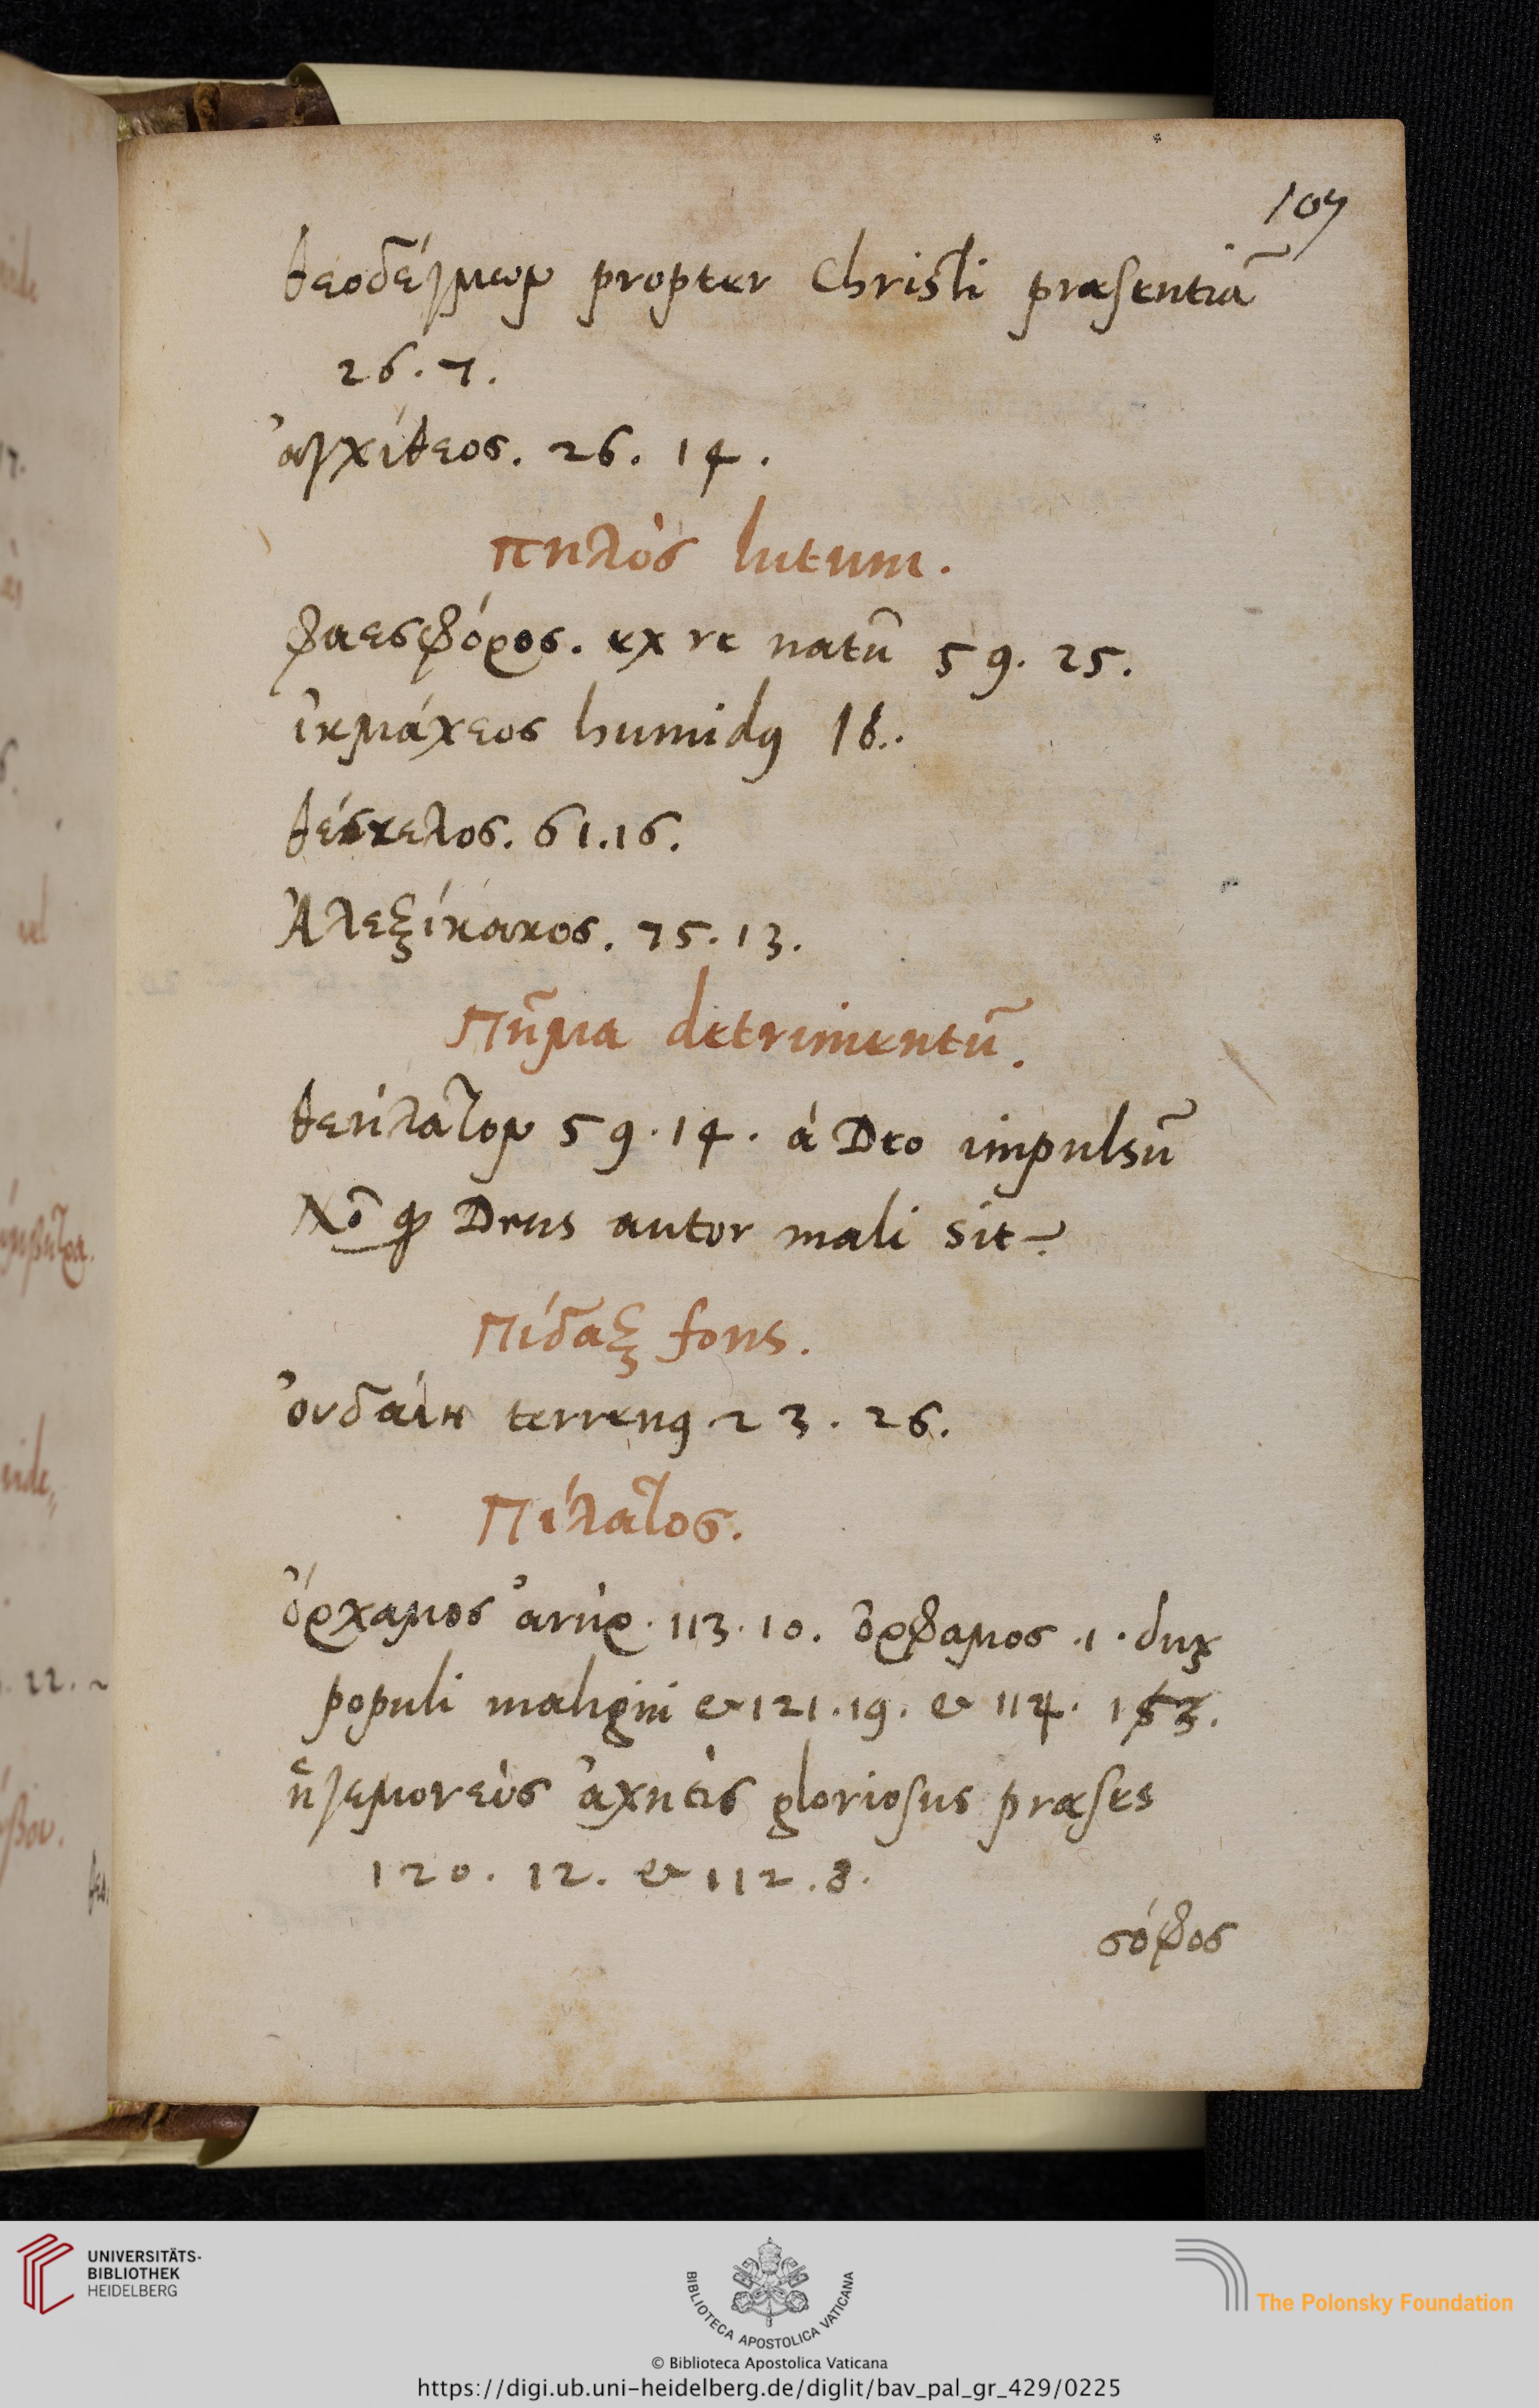 107
θεοδέγμων propter Christi præsentiā
26. 7.
ἀγχίθεος. 26. 14.
πηλὸς lutum.
φαεσφόρος. ex re natū 59. 25.
ἰκμάχεος humidꝰ 16..
θέσκελος. 61. 16.
Ἀλεξίκακος. 75. 13.
Πῆμα detrimentū.
θεήλατον 59. 14. à Deo impulsū
Nō ꝙ Deus autor mali sit.
Πίδαξ fons.
ὀυδαίη terrenꝰ 23. 26.
Πιλάτος.
ὄρχαμος ἀνὴρ. 113. 10. ὄρφαμος .i. dux
populi maligni & 121. 19. & 114.
ἡγεμονεὺς ἀχητὶς gloriosus præses
120. 12. & 112. 8.
σόφος
UNIVERSITÄTS-
BIBLIOTHEK
HEIDELBERG
BIBLIOTECA APOSTOLICA VATICANA
The Polonsky Foundation
© Biblioteca Apostolica Vaticana
https://digi.ub.uni-heidelberg.de/diglit/bav_pal_gr_429/0225